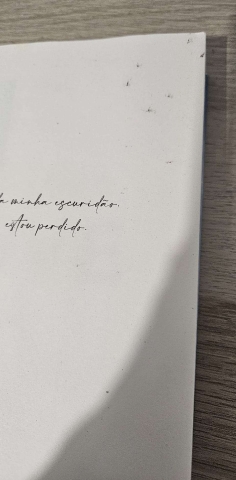 da minha escuridão,
estou perdido.